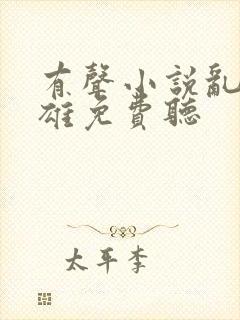 有聲小說亂
雄免費聽
太平李